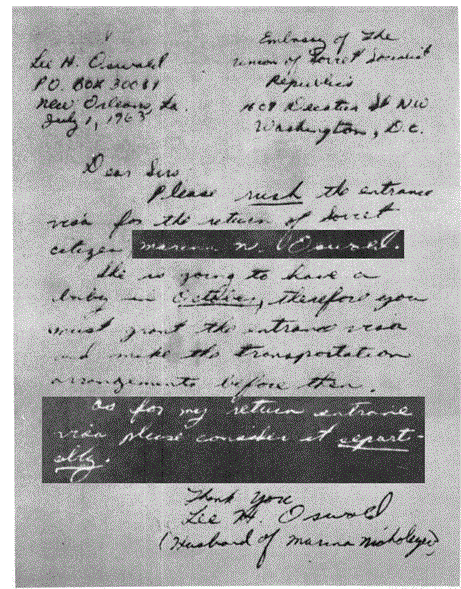 Lee H. Oswald
P.O. BOX 30061
New Orleans, La.
July 1, 1963
Embassy of the
Union of Soviet Socialist
Republics
St NW
Washington, D.C.
Dear Sirs
Please rush the entrance
visa for the return of Soviet
citizen marina N. Oswald.
She is going to have a
baby in October, therefore you
must grant the entrance visa
and make the transportation
arrangements before then.
As for my return entrance
visa please consider it separt-
ally.
Thank you
Lee H. Oswald
(Husband of Marina Nicholeyev)